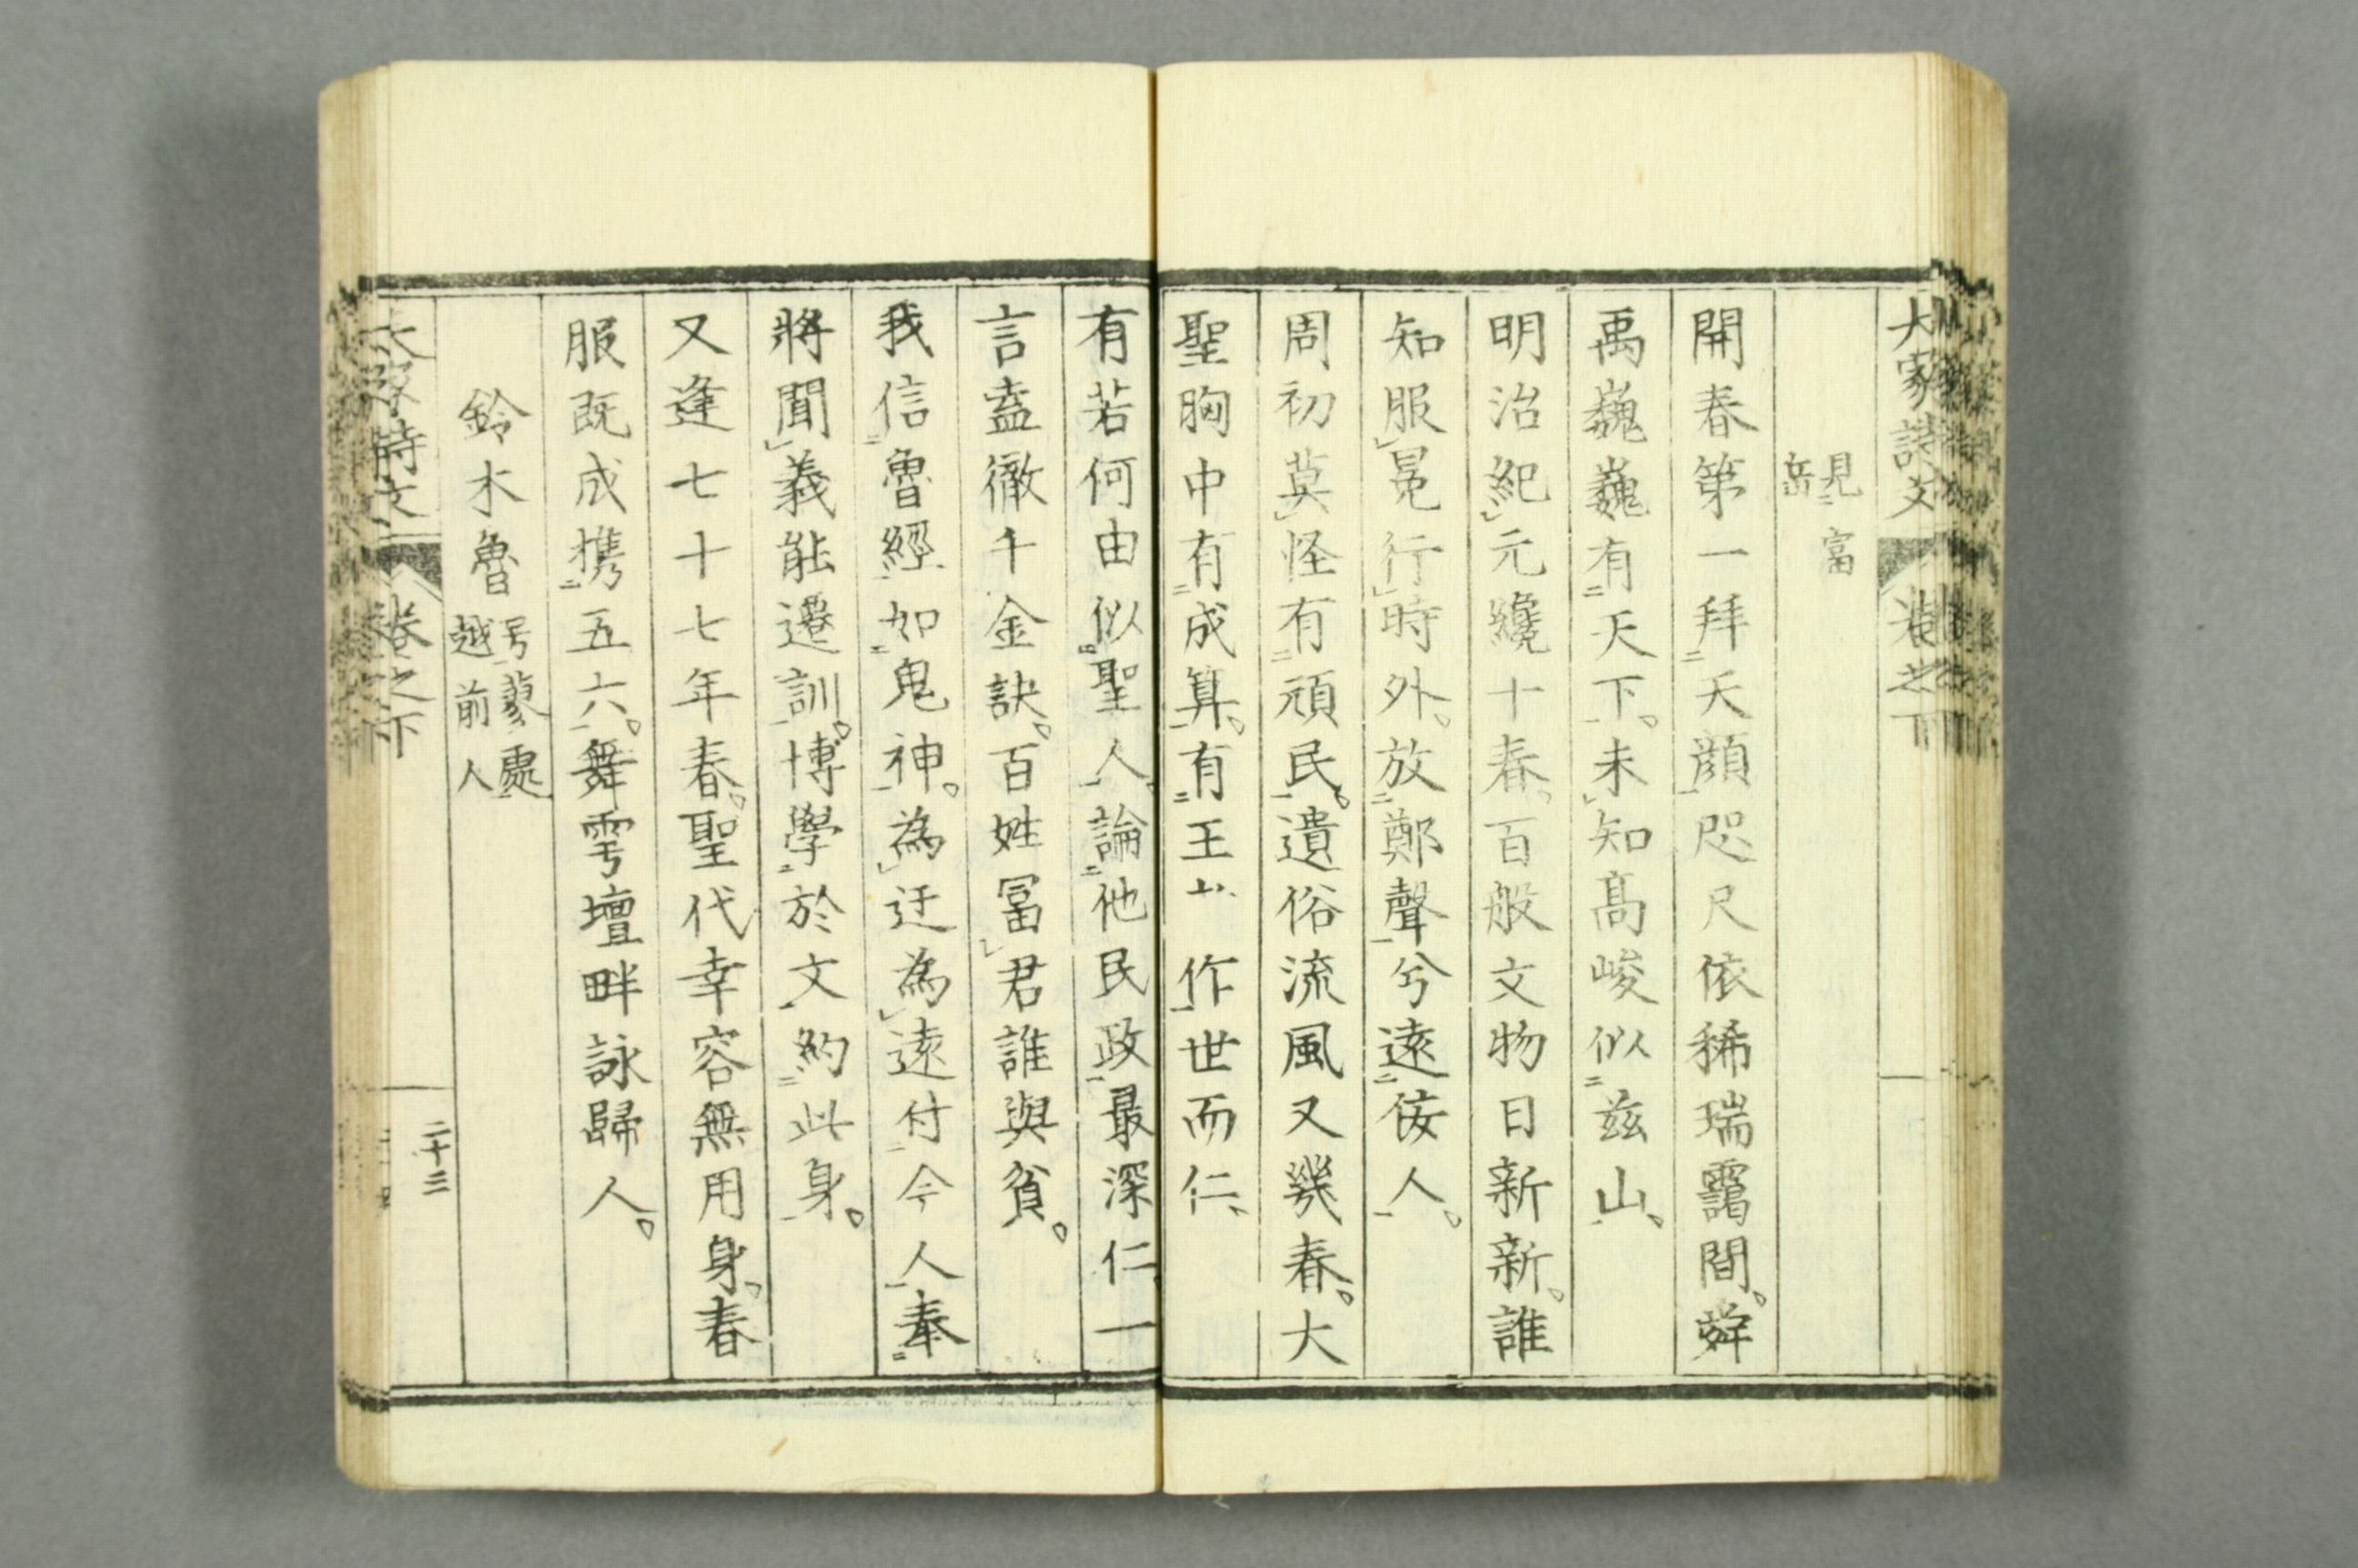 大家詩文 卷之下
見富
岳
開春第一拜天顔咫尺依稀瑞靄間。舜
禹巍巍有天下。未知高峻似茲山、
明治紀元纔十春、百般文物日新新。誰
知服冕行時外。放鄭聲兮遠佞人。
周初莫怪有頑民。遺俗流風又幾春。大
聖胸中有成算。有王作世而仁、
有若何由似聖人、論他民政最深仁一
言盍徹千金訣。百姓冨君誰與貧。
我信魯經如鬼神。為迂為遠付今人奉
將聞義能遷訓。博學於文約此身。
又逢七十七年春。聖代幸容無用身。春
服既成携五六。舞雩壇畔詠歸人。
鈴木魯
号蓼處
越前人
大家詩文 卷之下 二十三